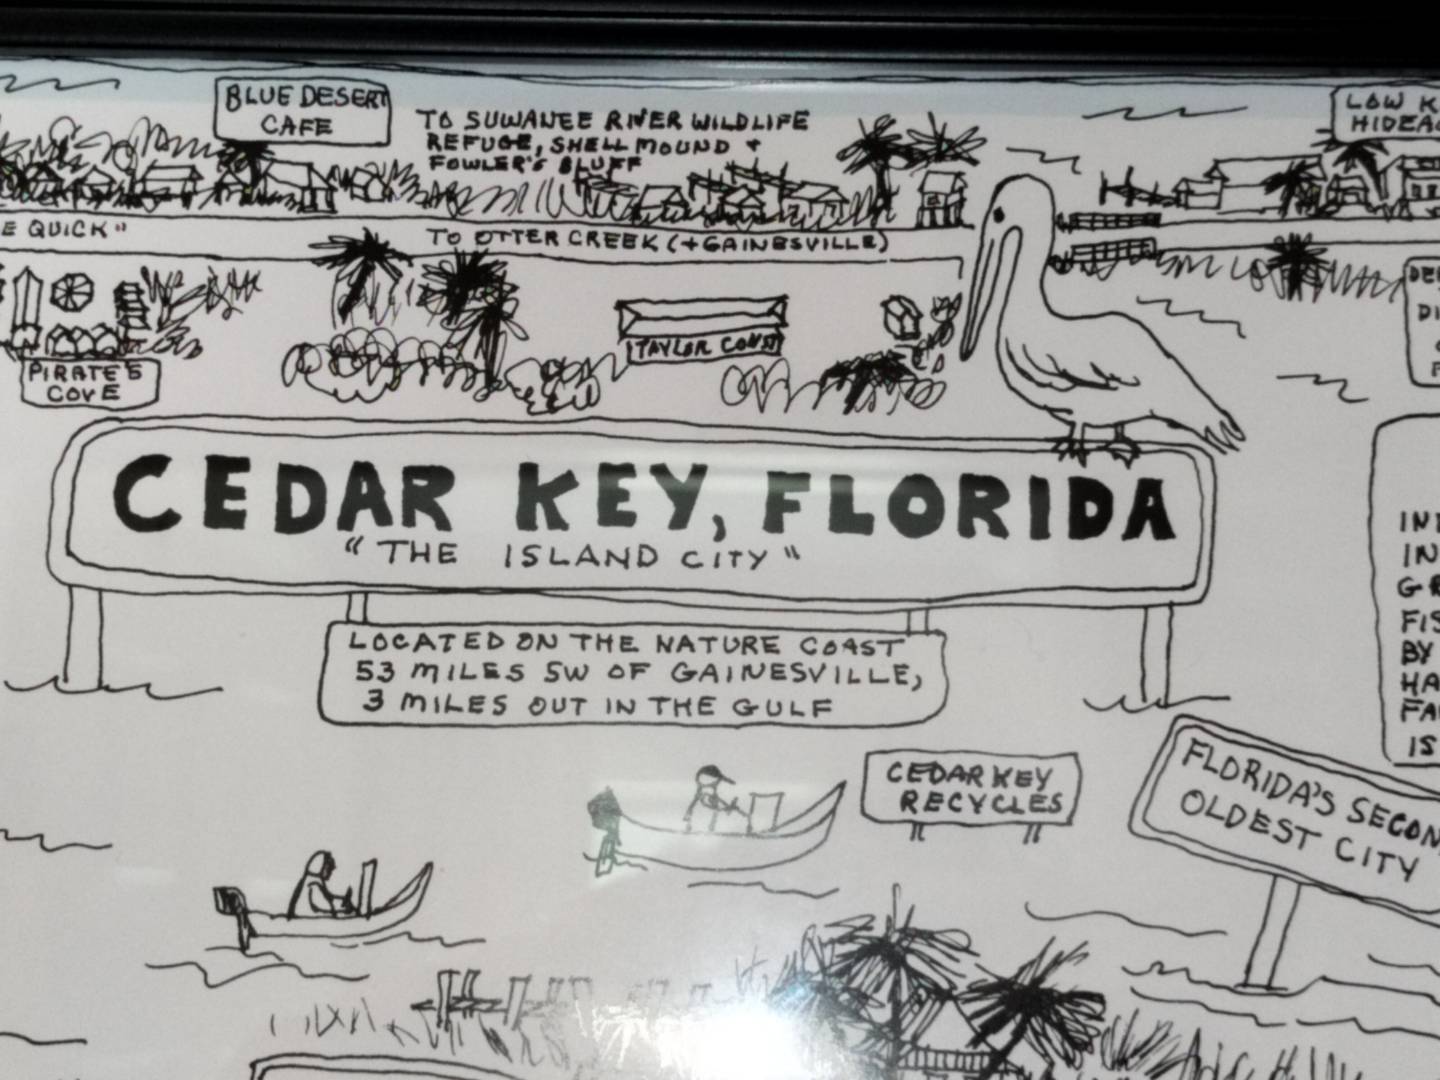 BLUE DESERT
CAFE
TO SUWANEE RIVER WILDLIFE
REFUGE, SHELL MOUND +
FOWLER'S BLUFF
LOW K
HIDEA
E QUICK"
TO OTTER CREEK (+GAINESVILLE)
TAYLOR CONST
PIRATE'S
COVE
DI
CEDAR KEY, FLORIDA
"THE ISLAND CITY"
LOCATED ON THE NATURE COAST
53 MILES SW OF GAINESVILLE,
3 MILES OUT IN THE GULF
IN
GR
FIS
BY
HA
FA
IS
CEDAR KEY
RECYCLES
FLORIDA'S SECON
OLDEST CITY